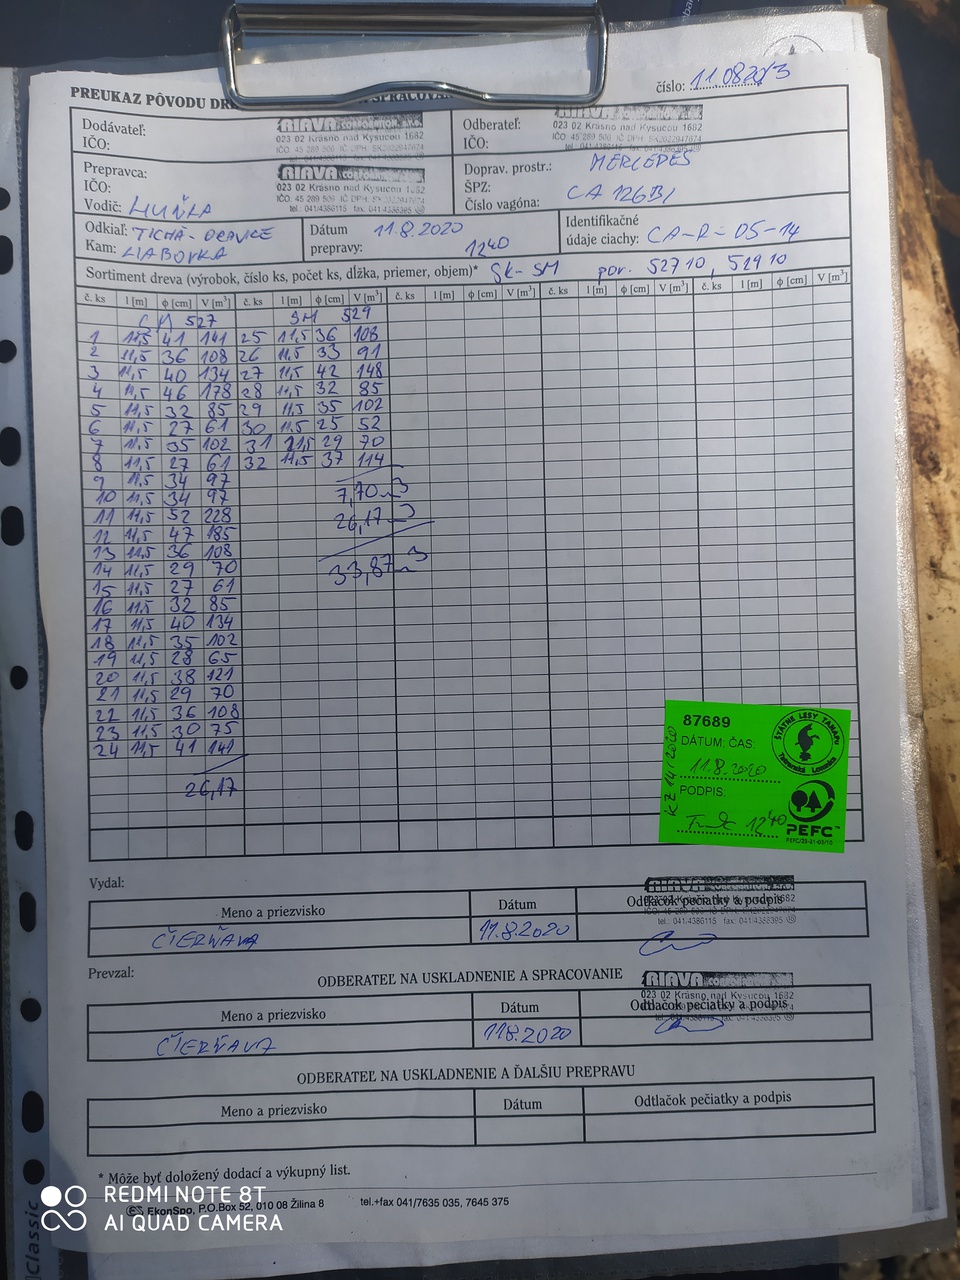 PREUKAZ PÔVODU
číslo: 110820/3
Dodávateľ:
IČO:
RIAVA
023 02 Krásno nad Kysucou 1682
Odberateľ:
IČO:
RIAVA
023 02 Krásno nad Kysucou 1682
Prepravca:
IČO:
Vodič: HUŇKA
RIAVA
023 02 Krásno nad Kysucou 1682
tel.: 041/4386115 fax: 041/4386395
Doprav. prostr.: MERCEDES
ŠPZ: CA 126BI
Číslo vagóna:
Odkiaľ: TICHÁ-ORAVICE
Kam: LIABOVKA
Dátum
prepravy: 11.8.2020
12 40
Identifikačné
údaje ciachy: CA-R-05-14
Sortiment dreva (výrobok, číslo ks, počet ks, dĺžka, priemer, objem)* SK-SM por. 52710, 52910
č. ks l [m] ϕ [cm] V [m³] č. ks l [m] ϕ [cm] V [m³] č. ks l [m] ϕ [cm] V [m³] č. ks l [m] ϕ [cm] V [m³] č. ks l [m] ϕ [cm] V [m³]
SM 527 SM 529
1 11,5 41 141 25 11,5 36 108
2 11,5 36 108 26 11,5 33 91
3 11,5 40 134 27 11,5 42 148
4 11,5 46 178 28 11,5 32 85
5 11,5 32 85 29 11,5 35 102
6 11,5 27 61 30 11,5 25 52
7 11,5 35 102 31 11,5 29 70
8 11,5 27 61 32 11,5 37 114
9 11,5 34 97
10 11,5 34 97 7,70 m3
11 11,5 52 228 26,17 m3
12 11,5 47 185
13 11,5 36 108
14 11,5 29 70 33,87 m3
15 11,5 27 61
16 11,5 32 85
17 11,5 40 134
18 11,5 35 102
19 11,5 28 65
20 11,5 38 121
21 11,5 29 70
22 11,5 36 108
23 11,5 30 75
24 11,5 41 141
26,17
87689
DÁTUM: ČAS:
11.8.2020
PODPIS:
12 40
KZ 14/2020
ŠTÁTNE LESY TANAPU
Tatranská Lomnica
PEFC™
PEFC/23-21-03/10
Vydal:
Meno a priezvisko Dátum Odtlačok pečiatky a podpis
ČIERŇAVA 11.8.2020
RIAVA
023 02 Krásno nad Kysucou 1682
tel.: 041/4386115 fax: 041/4386395
Prevzal:
ODBERATEĽ NA USKLADNENIE A SPRACOVANIE
Meno a priezvisko Dátum Odtlačok pečiatky a podpis
ČIERŇAVA 11.8.2020
RIAVA
023 02 Krásno nad Kysucou 1682
ODBERATEĽ NA USKLADNENIE A ĎALŠIU PREPRAVU
Meno a priezvisko Dátum Odtlačok pečiatky a podpis
* Môže byť doložený dodací a výkupný list.
EkonSpo, P.O.Box 52, 010 08 Žilina 8 tel.+fax 041/7635 035, 7645 375
REDMI NOTE 8T
AI QUAD CAMERA
Classic